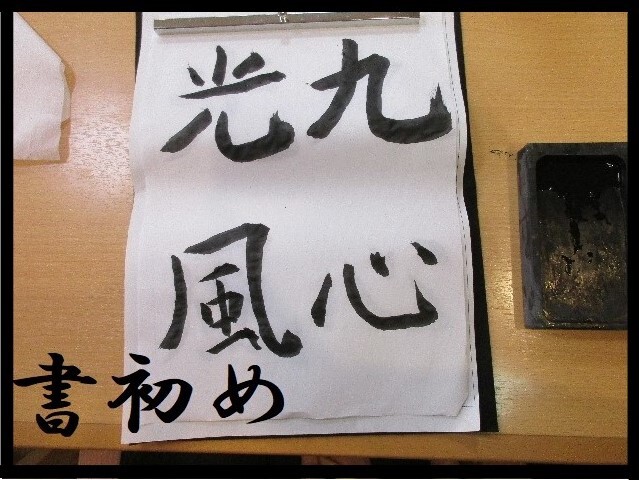 九心
光風
書初め